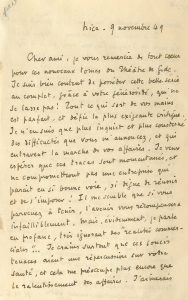 Nice. 9 novembre 49
Cher ami, je vous remercie de tout cœur
pour ces nouveaux tomes du Théâtre de Gide.
Je suis bien content de posséder cette belle série
au complet, grâce à votre générosité, qui ne
se lasse pas ! Tout ce qui sort de vos mains
est parfait, et défie la plus exigeante critique.
Je n'en suis que plus inquiet et plus consterné
des difficultés que vous m'annoncez, et qui
entravent la marche de vos affaires. Je veux
espérer que ces tracas sont momentanés, et
ne compromettent pas une entreprise qui
paraît en si bonne voie, si digne de réussir
et de s'imposer. Il me semble que si vous
parvenez à tenir, l'avenir vous récompensera
infailliblement. Mais, évidemment, je parle
en profane, très ignorant des "réalités commer-
ciales". Je crains surtout que ces soucis
tenaces aient une répercussion sur votre
santé, et cela me préoccupe plus encore que
le ralentissement des affaires. J'aimerais